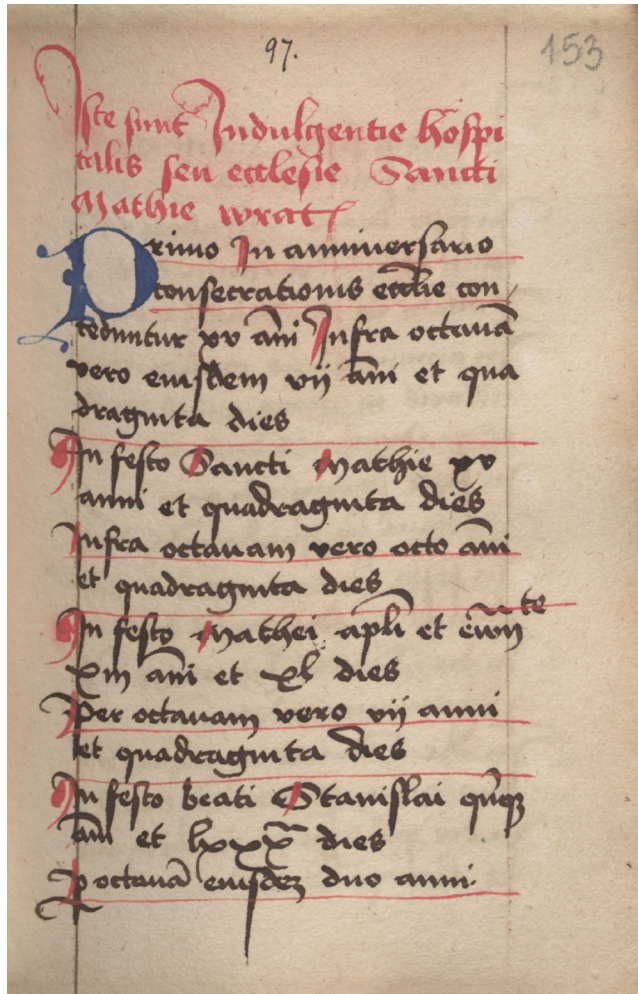 97.
153
Iste sunt Indulgentie hospi
talis seu ecclesie Sancti
Mathie wrat
Primo In anniuersario
consecrationis eccl̄ie con
ceduntur xv an̄i Infra octauā
vero eiusdem vij an̄i et qua
draginta dies
In festo Sancti Mathie xv
anni et quadraginta dies
Infra octauam vero octo an̄i
et quadraginta dies
In festo Mathei apl̄i et ewūte
xiii an̄i et xl dies
Per octauam vero vij anni
et quadraginta dies
In festo beati Stanislai quīqꝫ
an̄i et lxxx dies
ꝑ octauā eiusdeꝫ duo anni.